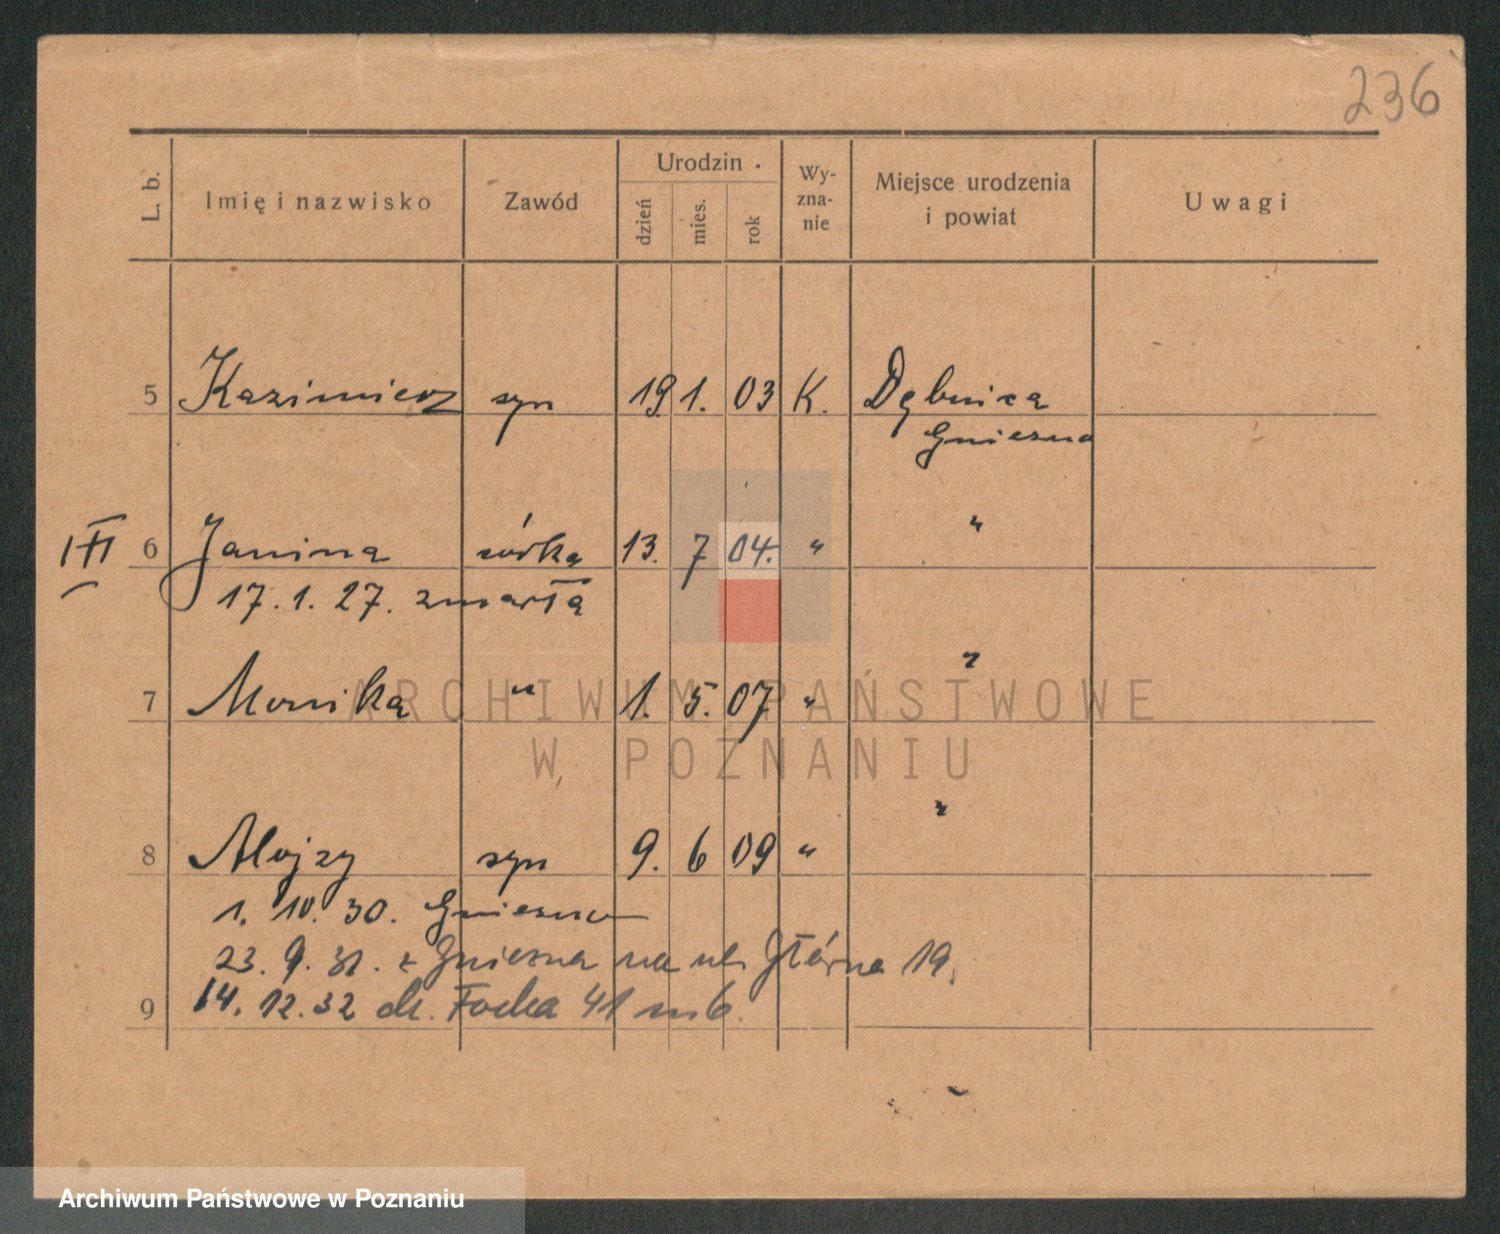 236
L. b. Imię i nazwisko Zawód Urodzin. dzień mies. rok Wy-zna-nie Miejsce urodzenia i powiat Uwagi
5 Kazimierz syn 19. 1. 03 K. Dębnica
Gniezno
III 6 Janina córka 13. 7 04. " "
17. 1. 27. zmarła
7 Monika " 1. 5. 07 " "
8 Alojzy syn 9. 6 09 " "
1. 10. 30. Gniezno
23. 9. 31. z Gniezna na ul. Główna 19.
9 14. 12. 32 Focha 41 m 6.
ARCHIWUM PAŃSTWOWE
W POZNANIU
Archiwum Państwowe w Poznaniu